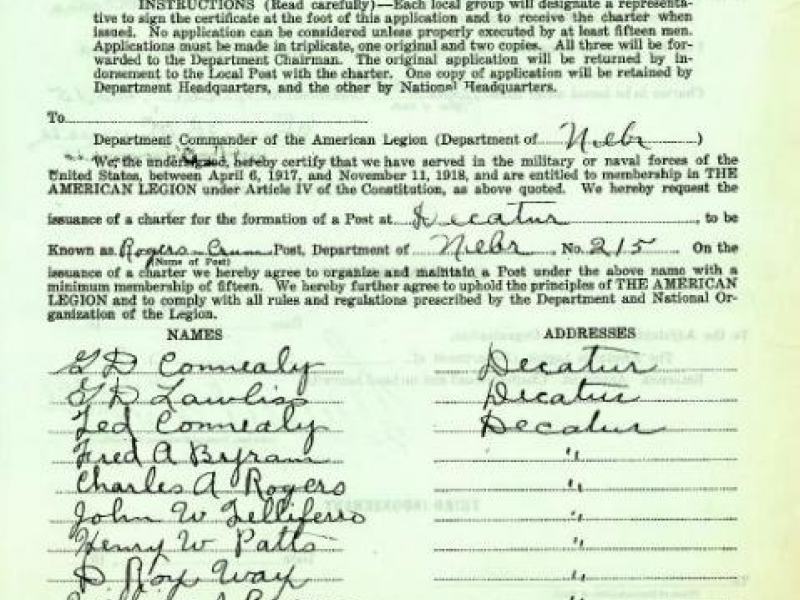 INSTRUCTIONS (Read carefully)—Each local group will designate a representa-
tive to sign the certificate at the foot of this application and to receive the charter when
issued. No application can be considered unless properly executed by at least fifteen men.
Applications must be made in triplicate, one original and two copies. All three will be for-
warded to the Department Chairman. The original application will be returned by in-
dorsement to the Local Post with the charter. One copy of application will be retained by
Department Headquarters, and the other by National Headquarters.
To
Department Commander of the American Legion (Department of Nebr )
We, the undersigned, hereby certify that we have served in the military or naval forces of the
United States, between April 6, 1917, and November 11, 1918, and are entitled to membership in THE
AMERICAN LEGION under Article IV of the Constitution, as above quoted. We hereby request the
issuance of a charter for the formation of a Post at Decatur, to be
Known as Rogers-Crum Post, Department of Nebr. No. 215 On the
(Name of Post)
issuance of a charter we hereby agree to organize and maintain a Post under the above name with a
minimum membership of fifteen. We hereby further agree to uphold the principles of THE AMERICAN
LEGION and to comply with all rules and regulations prescribed by the Department and National Or-
ganization of the Legion.
NAMES ADDRESSES
G D Connealy Decatur
Lawliss Decatur
Ted Connealy Decatur
Fred A Byram "
Charles A Rogers "
John W Telliferro "
Henry W Patts "
D. Roy Way "